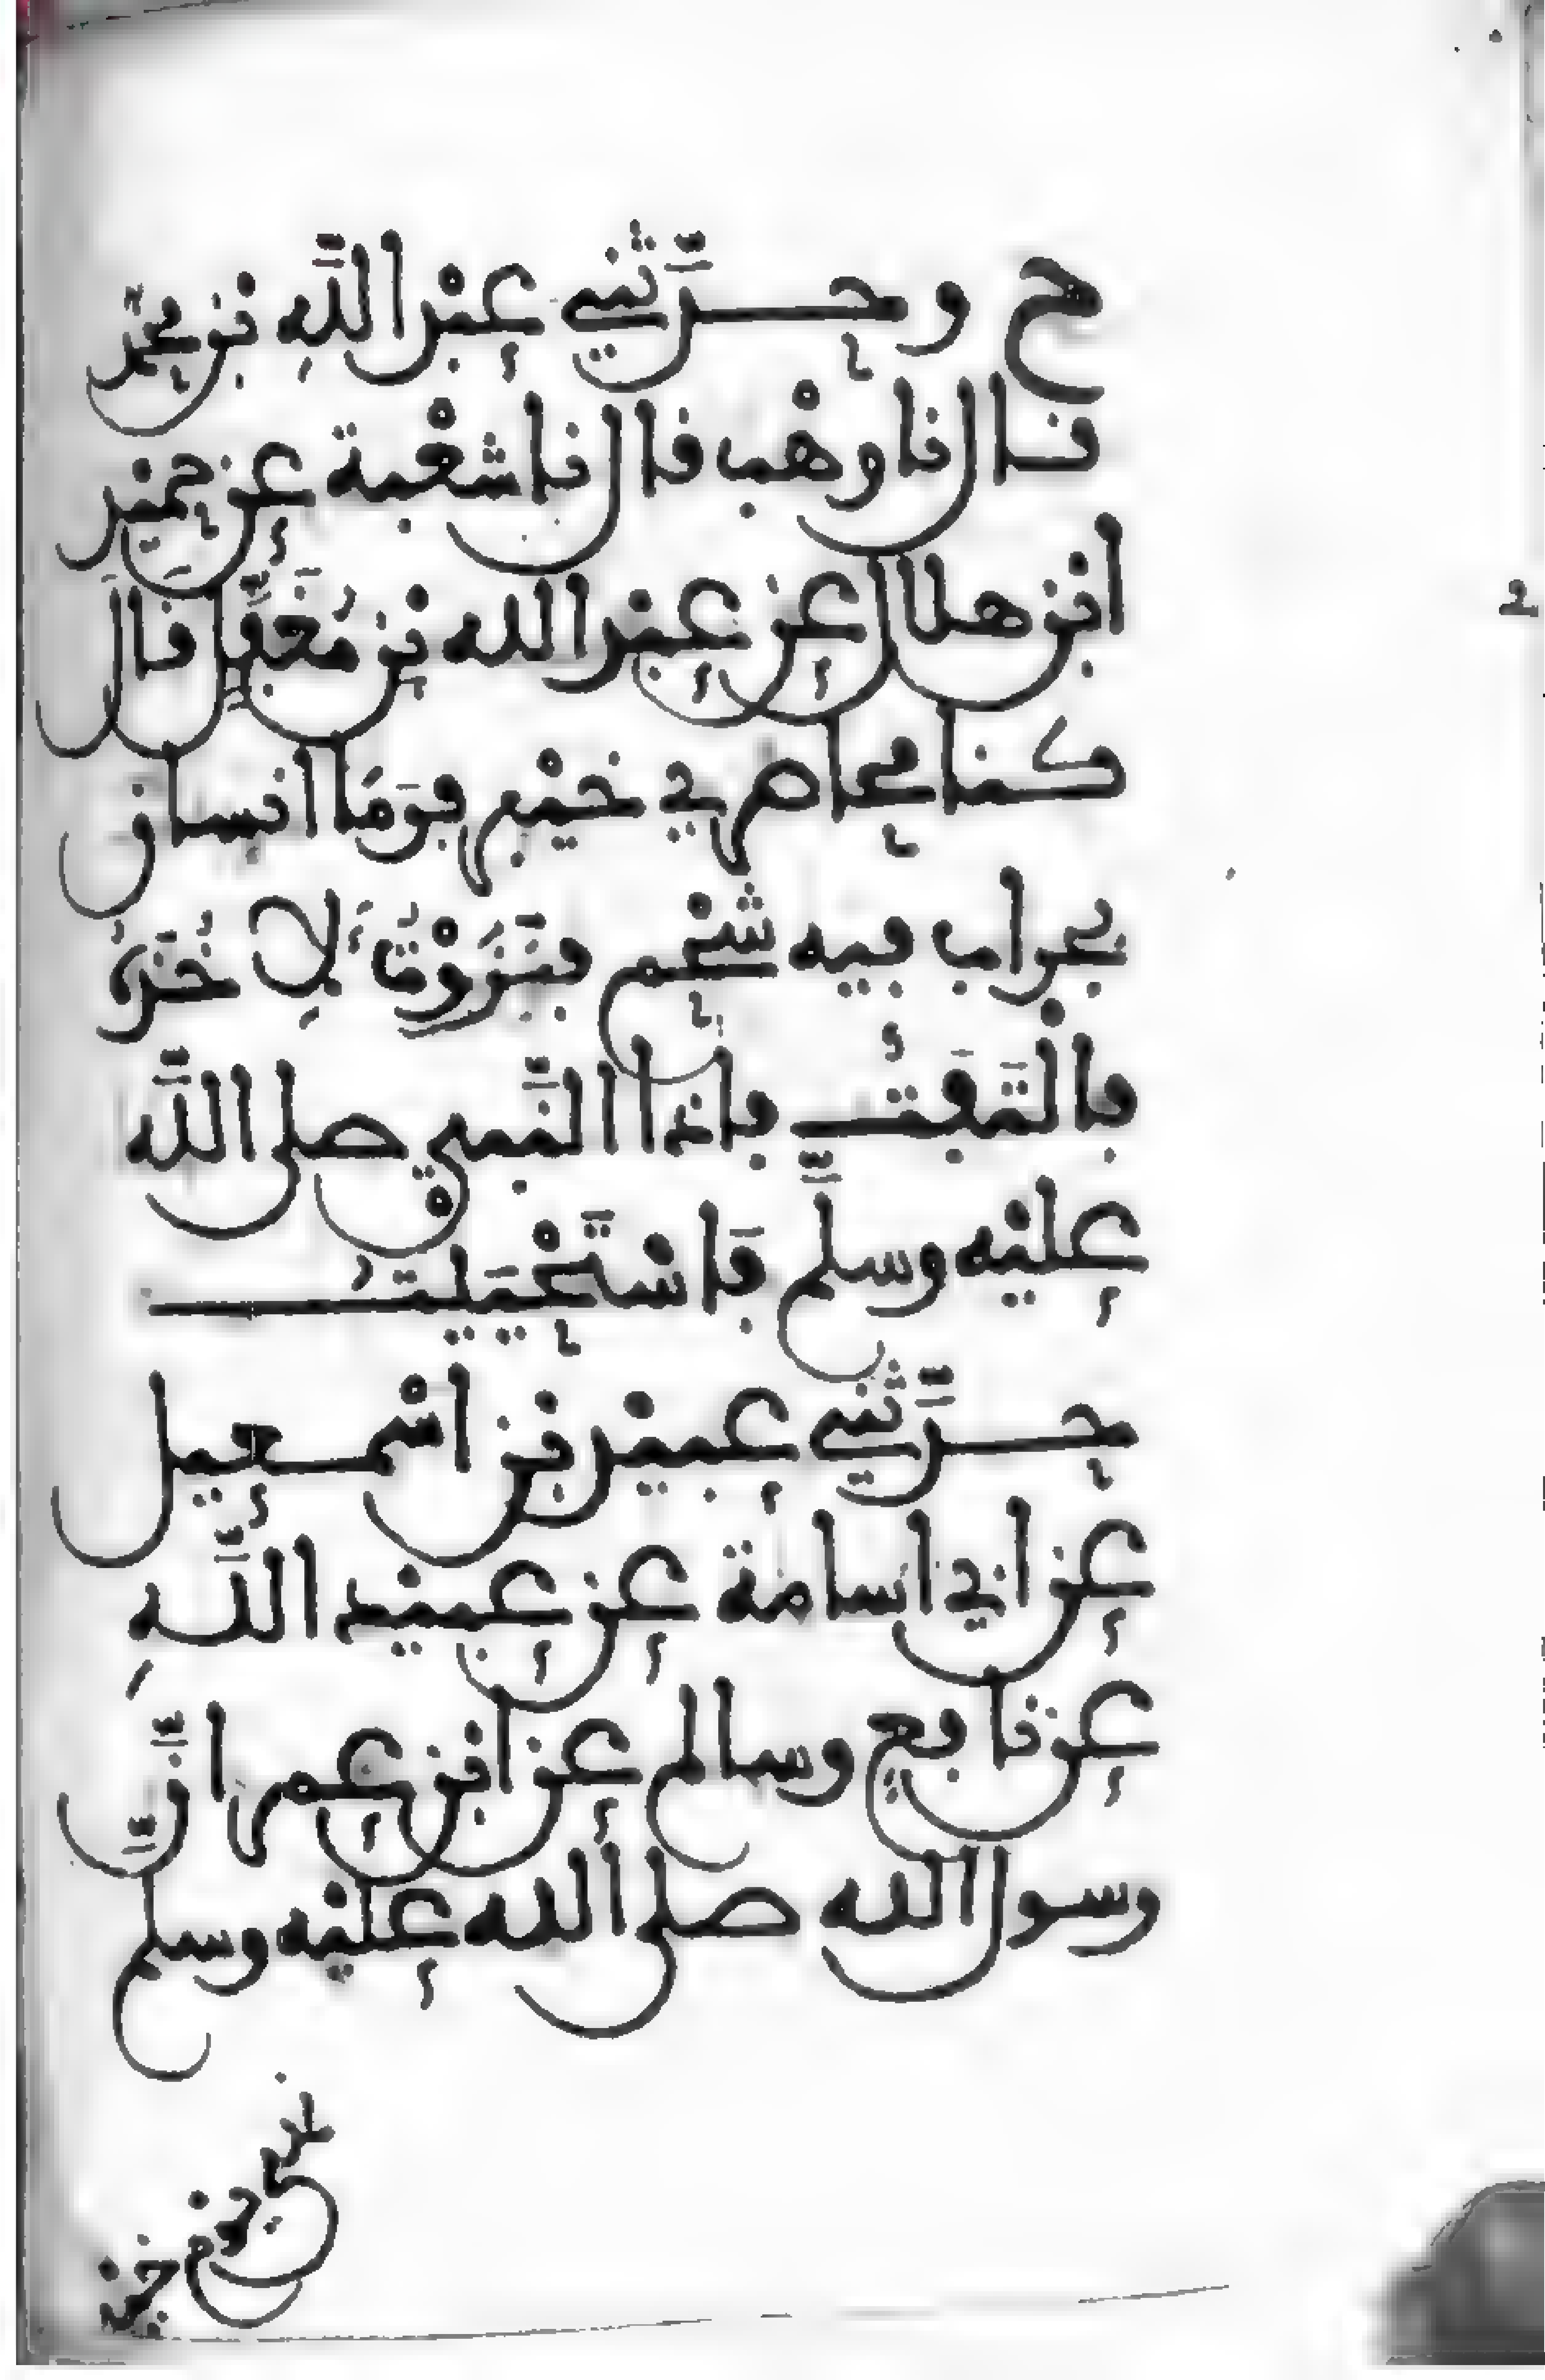 ح وحدَّثني عبْد اللَّهِ بن محمَّد
قال نا وهْب قال نا شعْبة عن حميد
ابْن هلال عن عبْد الله بن مُغَفَّلٍ قال
كنا محاصري خيْبر فَرَمَا انسان
بجراب فيه شحْم فنَزَوْتُ لِاخُذَهُ
فالتَفَتُّ فإذا النَّبي صلى اللَّه
عليْه وسلَّم فَاسْتَحْيَيتُ
حدَّثني عبيْد بْن اسْمعيل
عن ابي اسامة عن عبيْد اللَّهِ
عن نافعٍ وسالم عن ابن عمر انَّ
رسول الله صلى الله عليْه وسلَّم
نهى يوْم خيْبر